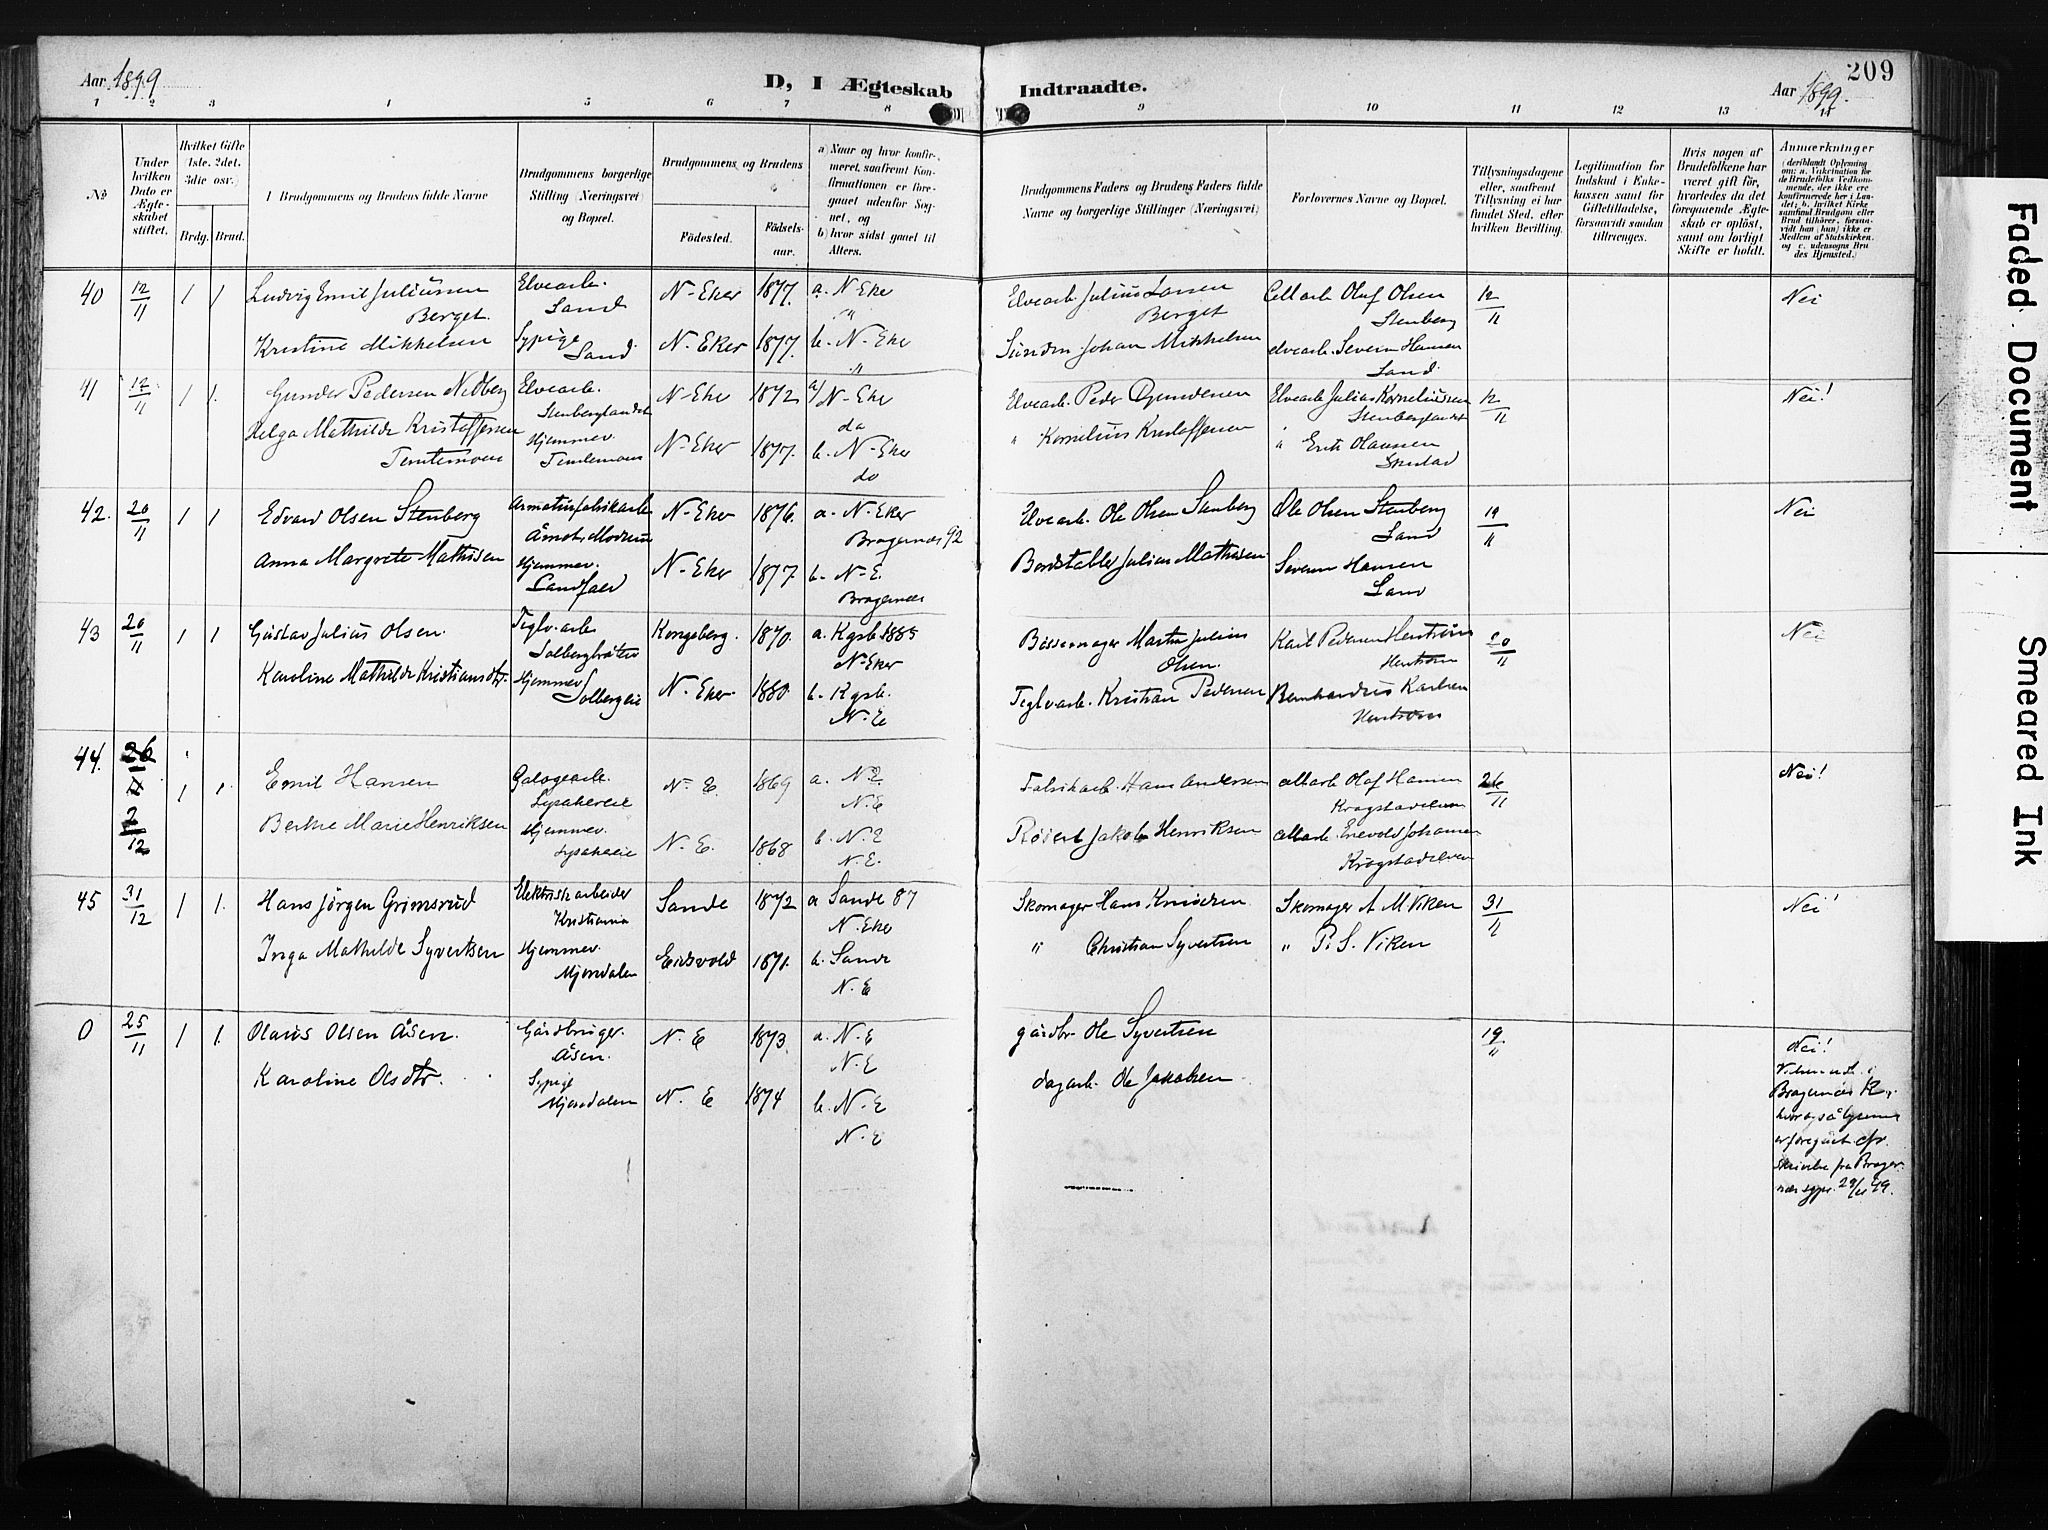 Aar 1899
D, I Ægteskab
Indtraadte.
Aar 1899.
209
1 2 3 4 5 6 7 8 9 10 11 12 13 14
No
Under hvilken Dato er Ægteskabet stiftet.
Hvilket Gifte (1ste. 2det. 3die osv.)
Brdg.
Brud.
Brudgommens og Brudens fulde Navne
Brudgommens borgerlige Stilling (Næringsvei) og Bopæl.
Brudgommens og Brudens
Födested.
Födselsaar.
a) Naar og hvor konfirmeret, saafremt Konfirmationen er foregaaet udenfor Sognet, og
b) hvor sidst gaaet til Alters.
Brudgommens Faders og Brudens Faders fulde Navne og borgerlige Stillinger (Næringsvei)
Forlovernes Navne og Bopæl.
Tillysningsdagene eller, saafremt Tillysning ei har fundet Sted, efter hvilken Bevilling.
Legitimation for Indskud i Enkekassen samt for Giftetilladelse, forsaavidt saadan tiltrænges.
Hvis nogen af Brudefolkene har været gift før, hvorledes da det foregaaende Ægteskab er opløst, samt om lovligt Skifte er holdt.
Anmærkninger
(deriblandt Oplysning om: a. Vaksination for de Brudefolks Vedkommende, der ikke ere konfirmerede her i Landet; b. hvilket Kirkesamfund Brudgom eller Brud tilhører, forsaavidt han (hun) ikke er Medlem af Statskirken, og c. udensogns Brudes Hjemsted.)
40 12/11 1 1 Ludvig Emil Juliussen Berget Elvearb. Sand N-Eker 1877. a. N-Eker Elvearb. Julius Larsen Berget Cellarb Oluf Olsen Stenberg 12/11 Nei
Kristine Mikkelsen Sypige Sand N-Eker 1877. b. N-Eker Johan Mikkelsen elvearb. Severin Hansen Sand
41 12/11 1 1. Gunder Pedersen Nedberg Elvearb. Stenberglandet N-Eker 1872 a/ N-Eker da Elvearb. Peder Gundersen Elvearb Julius Korneliussen Stenberglandet 12/11 Nei!
Helga Mathilde Kristoffersen Temtemoen Hjemmev. Temtemoen N-Eker 1877. b. N-Eker do " Kornelius Kristoffersen " Erik Olaussen
42. 20/11 1 1 Edvard Olsen Stenberg Armaturfabrikarb. Åmot Modum N-Eker 1876. a. N-Eker Bragernæs 92 Elvearb. Ole Olsen Stenberg Ole Olsen Stenberg Sand 19/11 Nei
Anna Margrete Mathisen Hjemmev. Landfald N-Eker 1877. b. N-E. Bragernæs Bordstabler Julius Mathisen Severin Hansen Sand
43 20/11 1 1 Gustav Julius Olsen. Teglv.arb. Solbergbråten Kongsberg. 1870. a. Kgsb. 1885 N-Eker Bøssemager Martin Julius Olsen. Karl Pedersen Horstrøm 20/11 Nei
Karoline Mathilde Kristiansdtr. Hjemmev Solbergeie N-Eker 1880. b. Kgsb. N-E Teglvarb. Kristian Pedersen Bernhardus Karlsen
44. 26/11 2/12 1 1. Emil Hansen Galogearb. Lysakereie N-E 1869 a. N-E N-E Fabrikarb. Hans Andersen cellarb Olaf Hansen Krogstadelven 26/11 Nei!
Berthe Marie Henriksen Hjemmev. Lysakereie N.E. 1868 b. N-E N.E. Jakob Henriksen cellarb. Enevold Johansen Krogstadelven
45 31/12 1 1. Hans Jørgen Grimsrud Elektrisk arbeider Kristiania Sande 1872 a Sande 87 N-Eker Skomager Hans Knudsen Skomager A M Viken 31/11 Nei!
Inga Mathilde Syvertsen Hjemmev. Mjøndalen Eidsvold 1871. b. Sande N.E " Christian Syvertsen " P. S. Viken
0 25/11 1 1. Olaus Olsen Åsen. Gårdbruger. Åsen. N.E 1873. a. N.E N.E gårdbr. Ole Syvertsen 19/11 Nei!
Karoline Olsdtr. Sypige Mjøndalen N.E 1874 b. N.E N.E dagarb. Ole Jakobsen
Viet i Bragernæs K., hvor også lysning er foregået. cfr. skrivelse fra Bragernæs sgpr. 29/11 99.
Faded Document
Smeared Ink